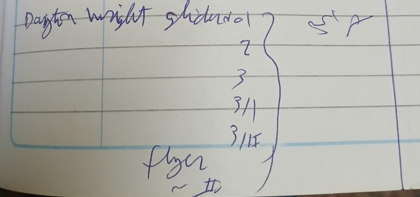 Dayton wright glider no 1
2
3
3/I
3/II
flyer
~ II